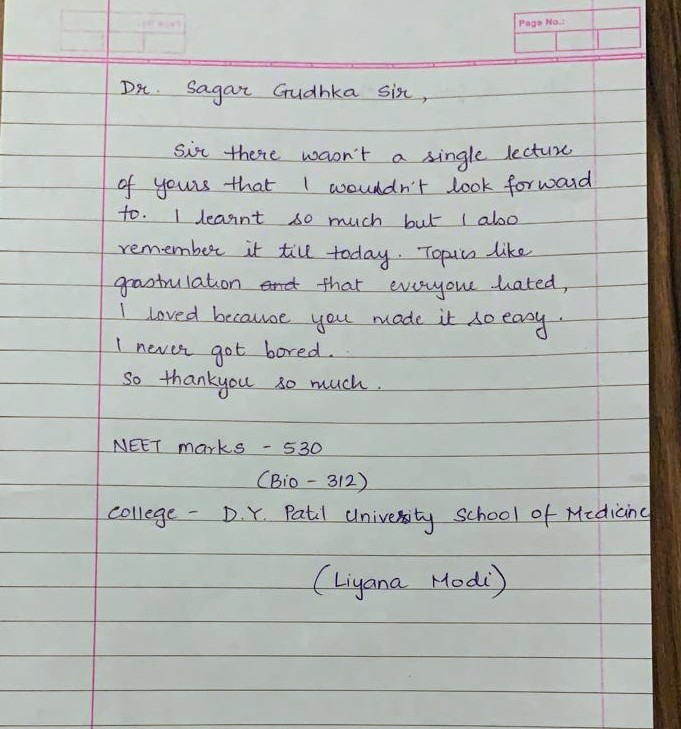 Page No.:
Dr. Sagar Gudhka Sir,
Sir there wasn't a single lecture
of yours that I wouldn't look forward
to. I learnt so much but I also
remember it till today. Topics like
gastrulation and that everyone hated,
I loved because you made it so easy.
I never got bored.
So thankyou so much.
NEET marks - 530
(Bio - 312)
College - D.Y. Patil University School of Medicine
(Liyana Modi)